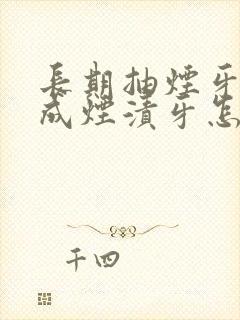 長期抽煙牙
成煙漬牙怎
千四